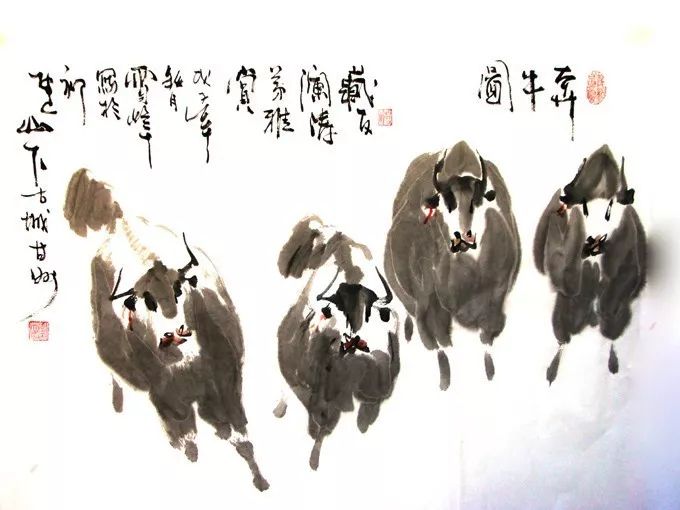 奔牛圖
藏友
瀾濤
雅
賞
戊子年
秋月
峰
寫於
祁
連山下古城甘州